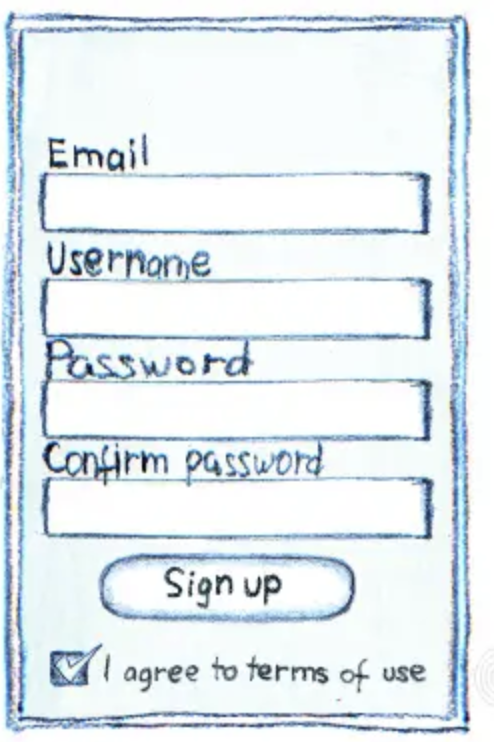 Email
Username
Password
Confirm password
Sign up
I agree to terms of use